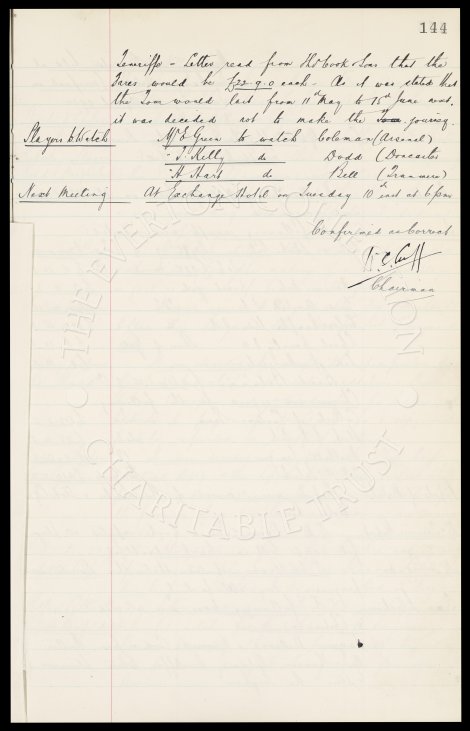 144
Teneriffe - Letter read from Ths Cook & Sons that the
fares would be £22-9-0 each. As it was stated that
the Tour would last from 11th May to 15th June next,
it was decided not to make the Tour journey.
Players to Watch Mr E Green to watch Coleman (Arsenal)
" T. Kelly do Dodd (Doncaster
" H Hart do Bell (Tranmere)
Next Meeting At Exchange Hotel on Tuesday 10th inst at 6 pm
Confirmed as Correct
W. C. Cuff
Chairman
THE EVERTON COLLECTION
CHARITABLE TRUST